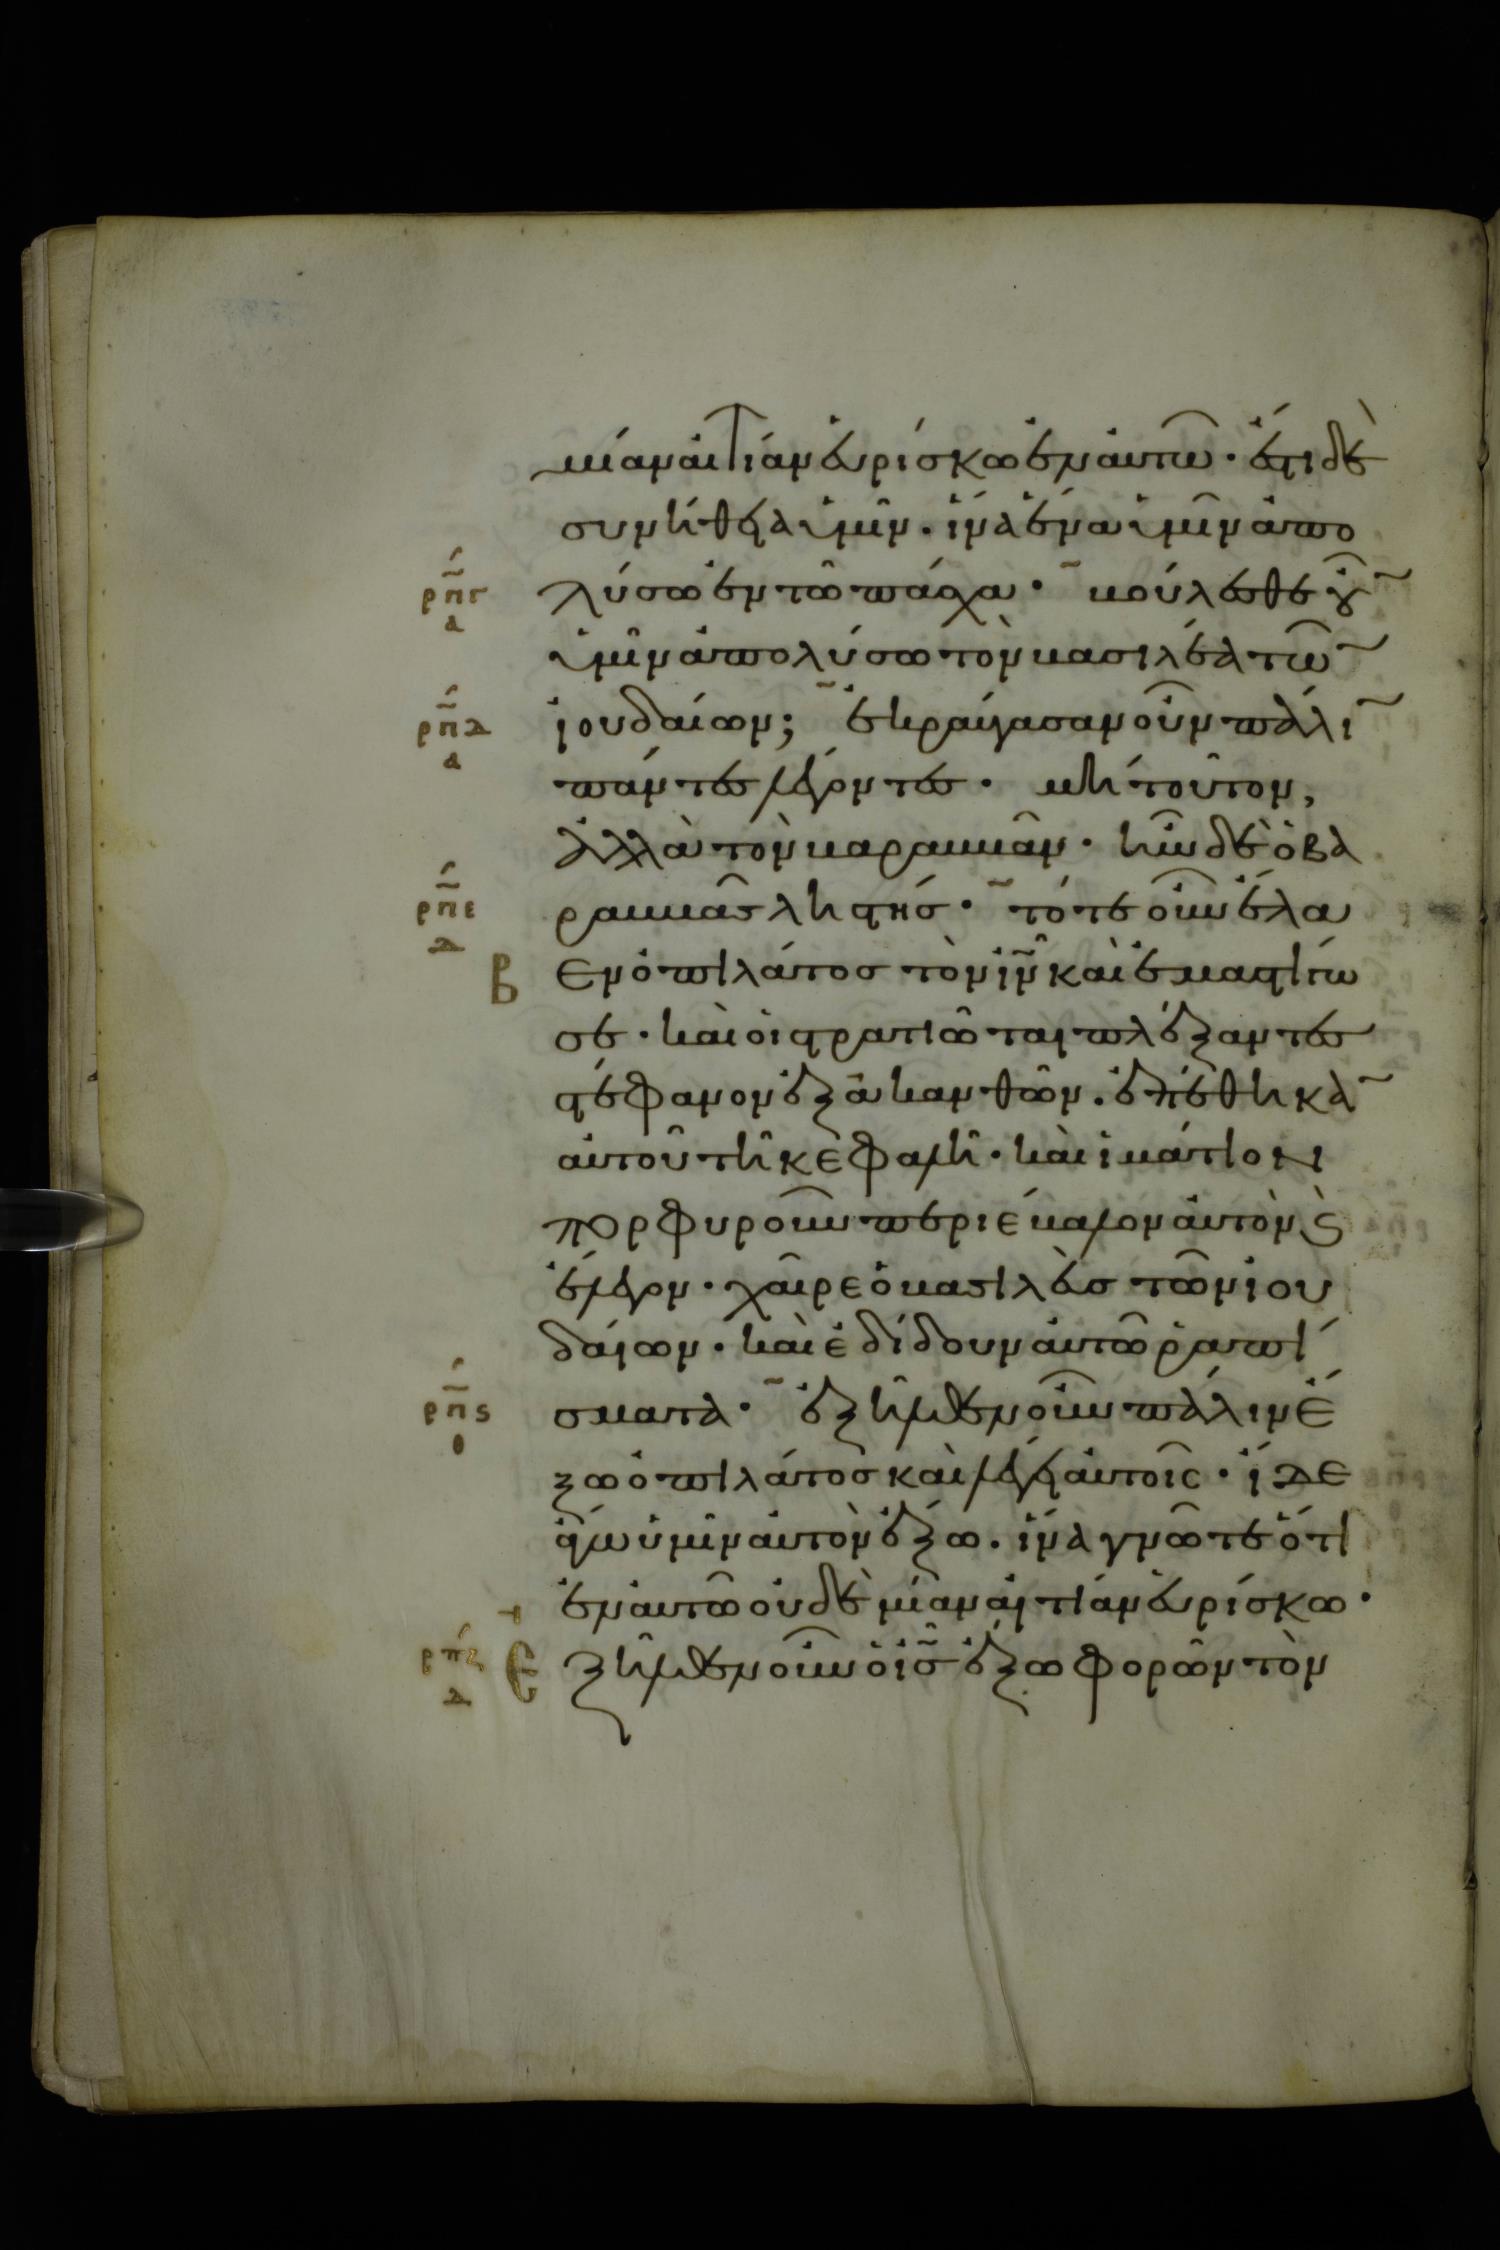 μίαν αἰτίαν εὑρίσκω ἐν αὐτῶ· ἔστι δὲ
συνήθεια ὑμῖν· ἵνα ἕνα ὑμῖν ἀπο
ρπγ λύσω ἐν τῶ πάσχα· βούλεσθε οὖ̃
α
ὑμῖν ἀπολύσω τὸν βασιλέα τῶ̃
ρπδ ἰουδαίων; ἐκραύγασαν οὖν πάλι̃
α
πάντες λέγοντες· μὴ τοῦτον,
ἀλλὰ τὸν βαραββᾶν· ἦν δὲ ὁ βα
ρπε ραββᾶς ληστής· τότε οὖν ἔλα
δ
β εν ὁ πιλάτος τὸν ιν̃ καὶ ἐμαστίγω
σε· καὶ οἱ στρατιῶται πλέξαντες
στέφανον ἐξ ἀκανθῶν· ἐπέθηκα̃
αὐτοῦ τῆ κεφαλῆ· καὶ ἱμάτιον
πορφυροῦν περιέβαλον αὐτὸν ϛ̀
ἔλεγον· χαῖρε ὁ βασιλεὺς τῶν ἰου
δαίων· καὶ ἐδίδουν αὐτῶ ῥαπί
ρπϛ σματα· ἐξῆλθεν οὖν πάλιν ἔ
θ
ξω ὁ πιλάτος καὶ λέγει αὐτοῖς· ἴδε
ἄγω ὑμῖν αὐτὸν ἔξω· ἵνα γνῶτε ὅτι
ἐν αὐτῶ οὐδὲ μίαν αἰτίαν εὑρίσκω·
ρπζ Ἐξῆλθεν οὖν ὁ ις̃ ἔξω φορῶν τὸν
δ